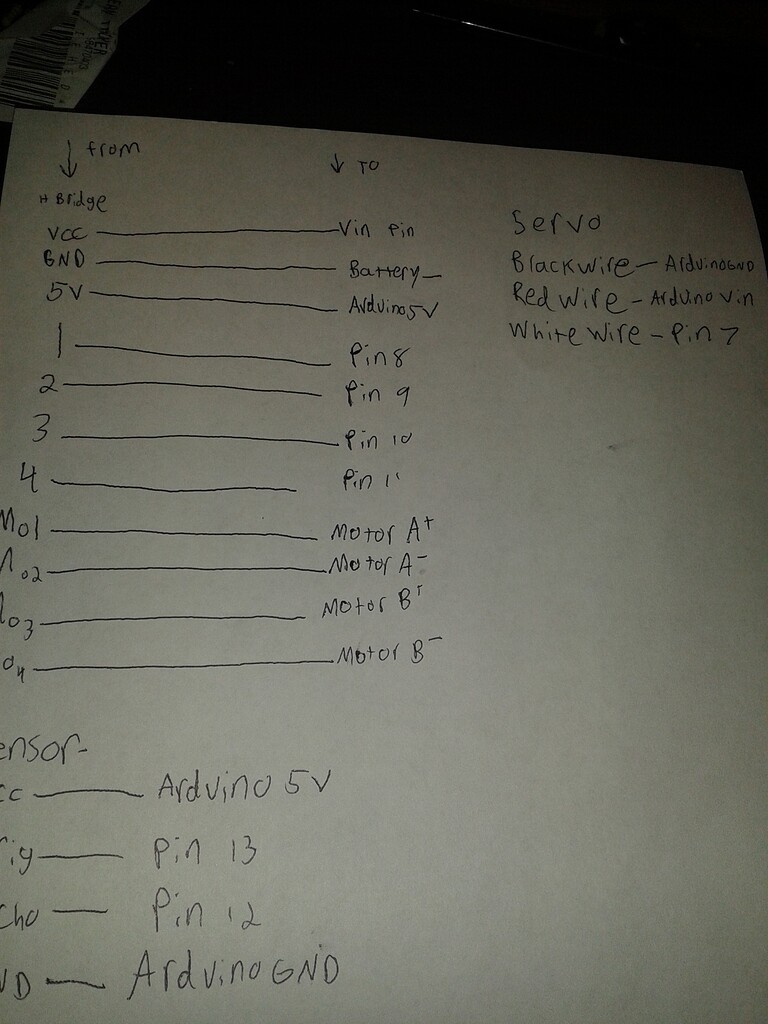 ↓ from ↓ TO
H Bridge
VCC — Vin Pin
GND — Battery –
5V — Arduino 5V
1 — Pin 8
2 — Pin 9
3 — Pin 10
4 — Pin 11
Mo1 — Motor A+
Mo2 — Motor A-
o3 — Motor B+
o4 — Motor B-
Servo
Black wire – Arduino GND
Red wire – Arduino Vin
White wire – Pin 7
ensor-
cc — Arduino 5V
ig — Pin 13
cho — Pin 12
ND — Arduino GND